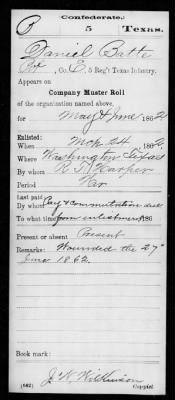 Confederate.
B 5 Texas.
Daniel Batte
Pvt, Co. E, 5 Reg't Texas Infantry.
Appears on
Company Muster Roll
of the organization named above,
for May & June 1862
Enlisted:
When Mch 24 1862.
Where Washington Texas
By whom R. T. Harper
Period War
Last paid:
By whom Pay & commutation due
To what time from enlistment 186
Present or absent Present
Remarks: Wounded the 27"
June 1862.
Book mark:
J. W. Wilkinson
(642) Copyist.